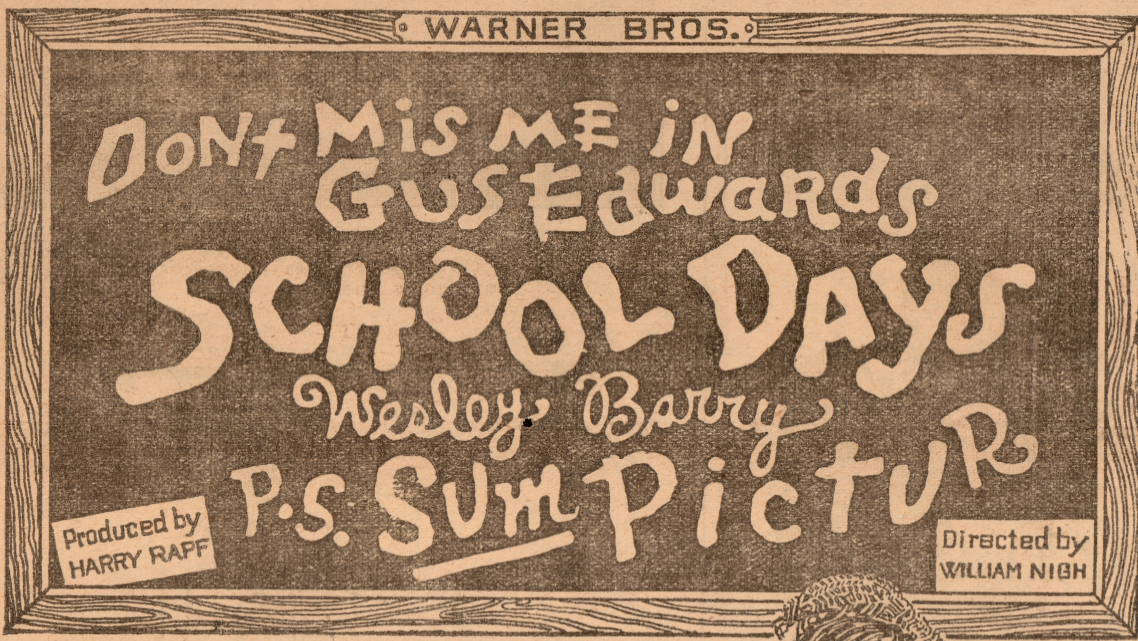 WARNER BROS.
DONt MiS ME iN
GUS EdwaRds
SCHOOL DAYS
Wesley Barry
P.S. SUM PictUR
Produced by
HARRY RAPF
Directed by
WILLIAM NIGH